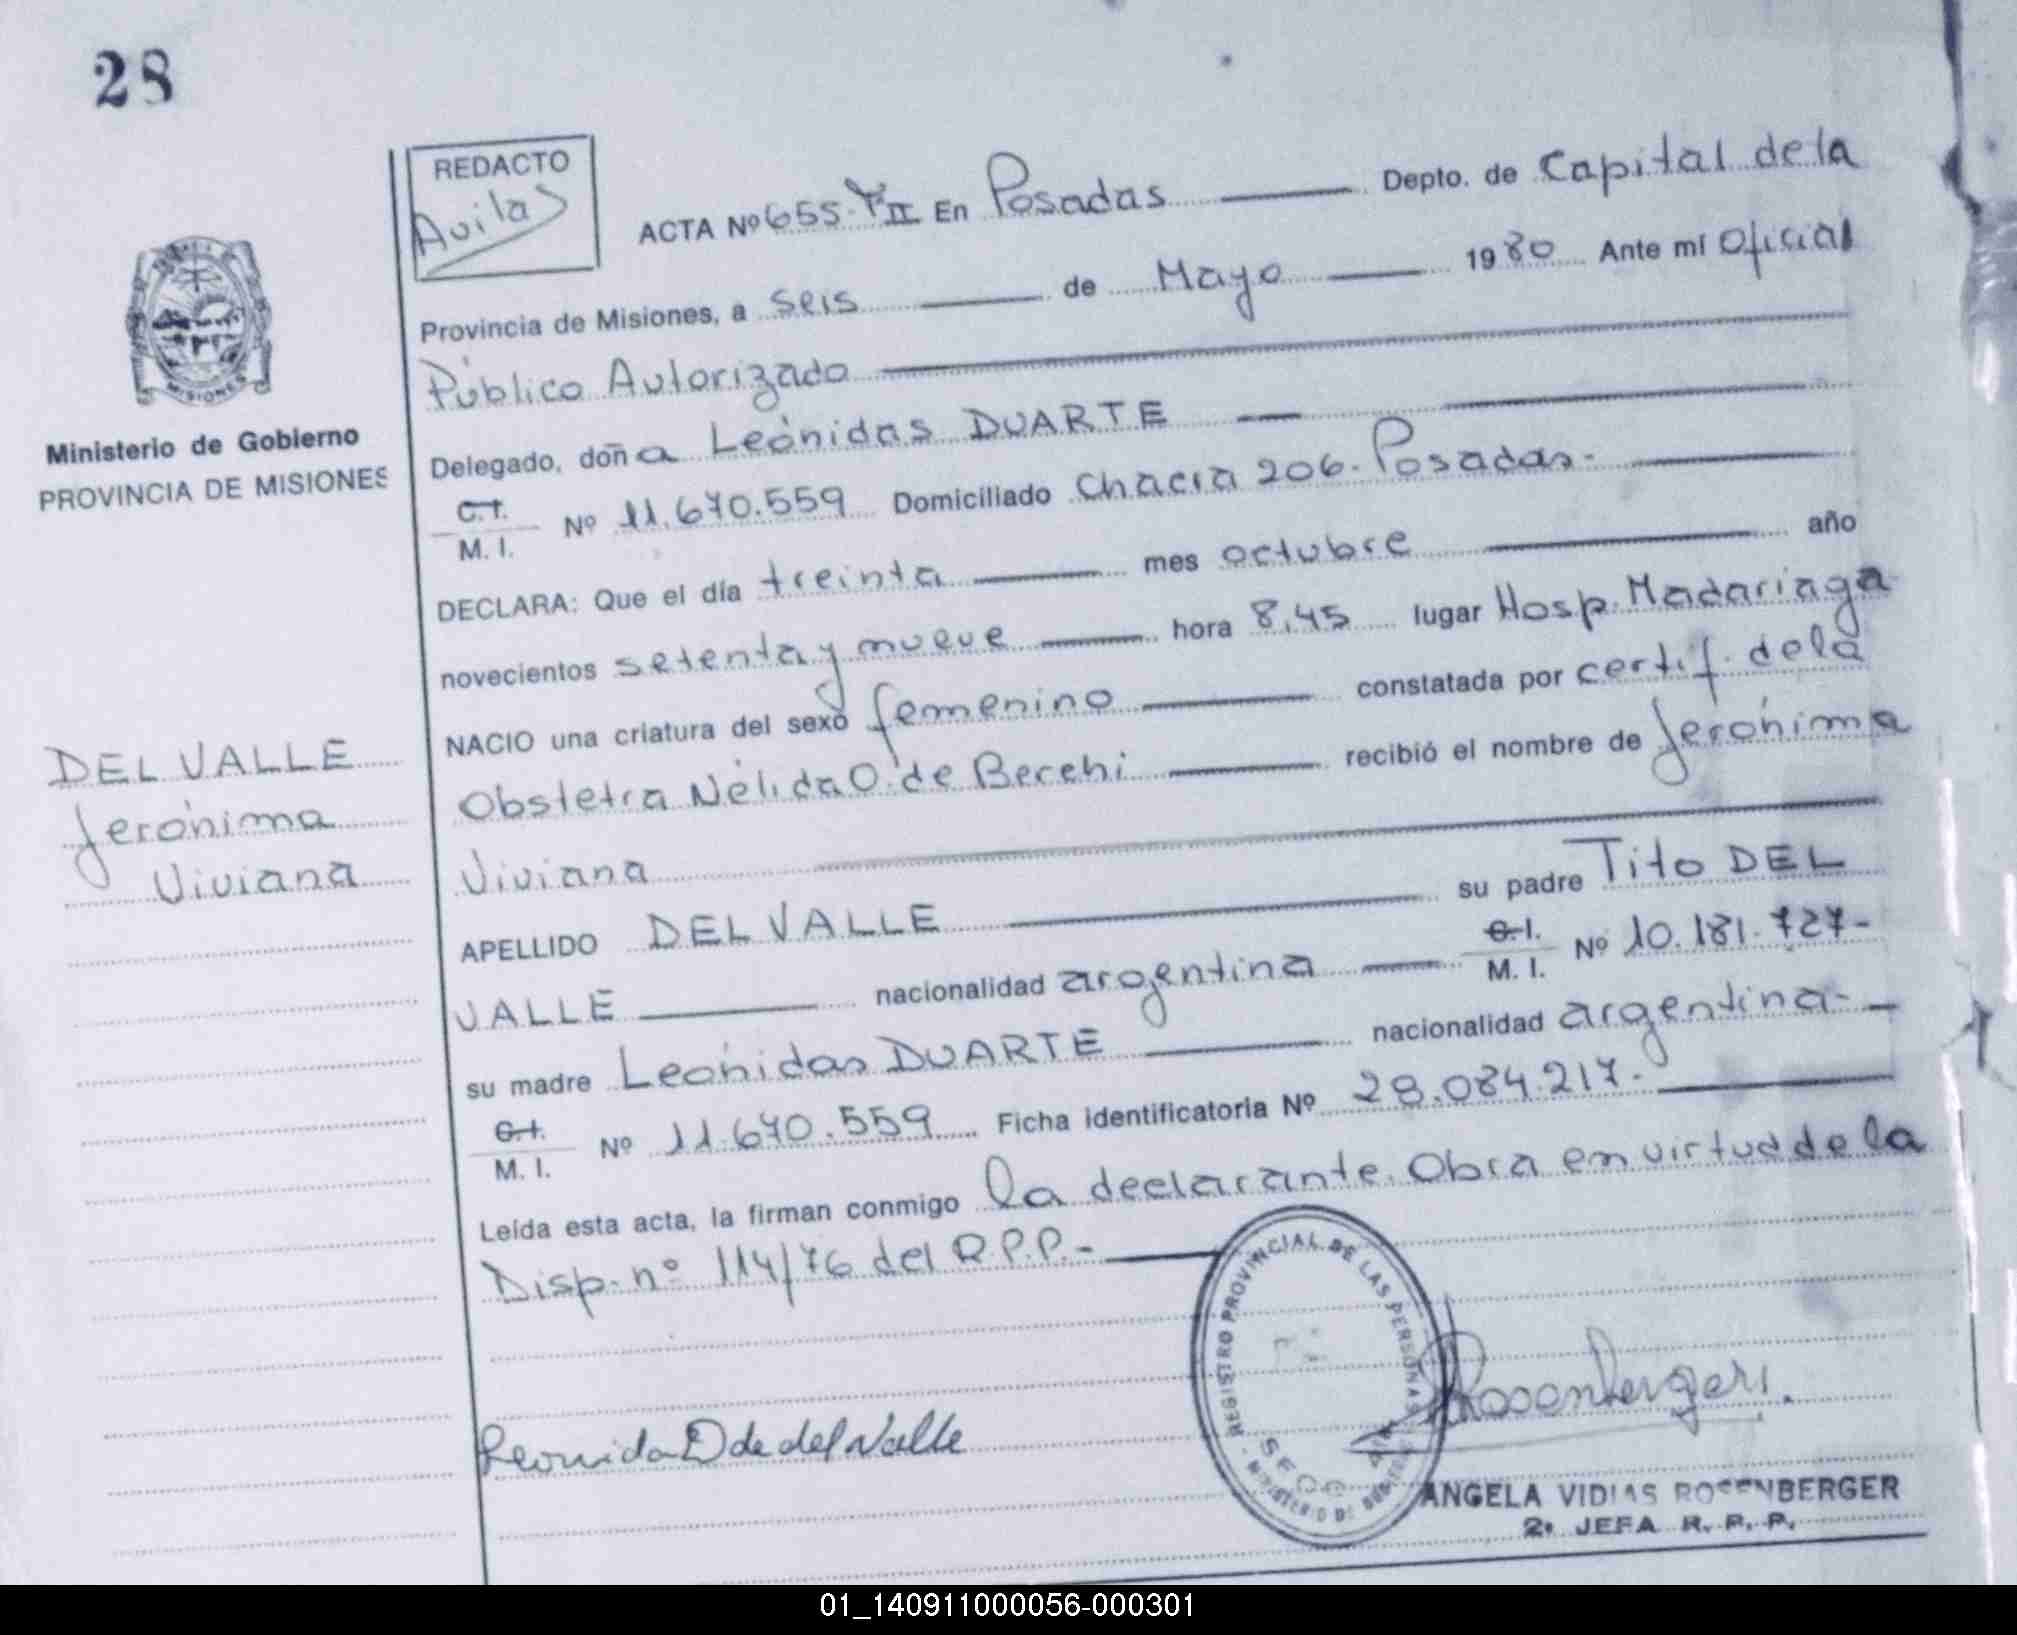 28
REDACTO
Avila
ACTA Nº 655. TII En Posadas Depto. de Capital de la
Provincia de Misiones, a seis de Mayo 1980 Ante mí Oficial
Público Autorizado
Delegado, doña Leónidas DUARTE
C.I.
M. I. Nº 11.670.559 Domiciliado Chacra 206. Posadas.-
DECLARA: Que el día treinta mes octubre año
novecientos setenta y nueve hora 8,45 lugar Hosp. Madariaga
NACIO una criatura del sexo femenino constatada por certif. de la
Obstetra Nélida O. de Becchi recibió el nombre de Jerónima
Viviana
APELLIDO DEL VALLE su padre Tito DEL
VALLE nacionalidad argentina C.I. M. I. Nº 10.181.727-
su madre Leónidas DUARTE nacionalidad argentina.-
C.I.
M. I. Nº 11.670.559 Ficha identificatoria Nº 28.084.217.-
Leída esta acta, la firman conmigo la declarante. Obra en virtud de la
Disp. nº 114/76 del R.P.P.-
Leonida D de del Valle
Rosenberger
ANGELA VIDIAS ROSENBERGER
2ª JEFA R. P. P.
REGISTRO PROVINCIAL DE LAS PERSONAS
MISIONES
Ministerio de Gobierno
PROVINCIA DE MISIONES
DEL VALLE
Jerónima
Viviana
01_140911000056-000301